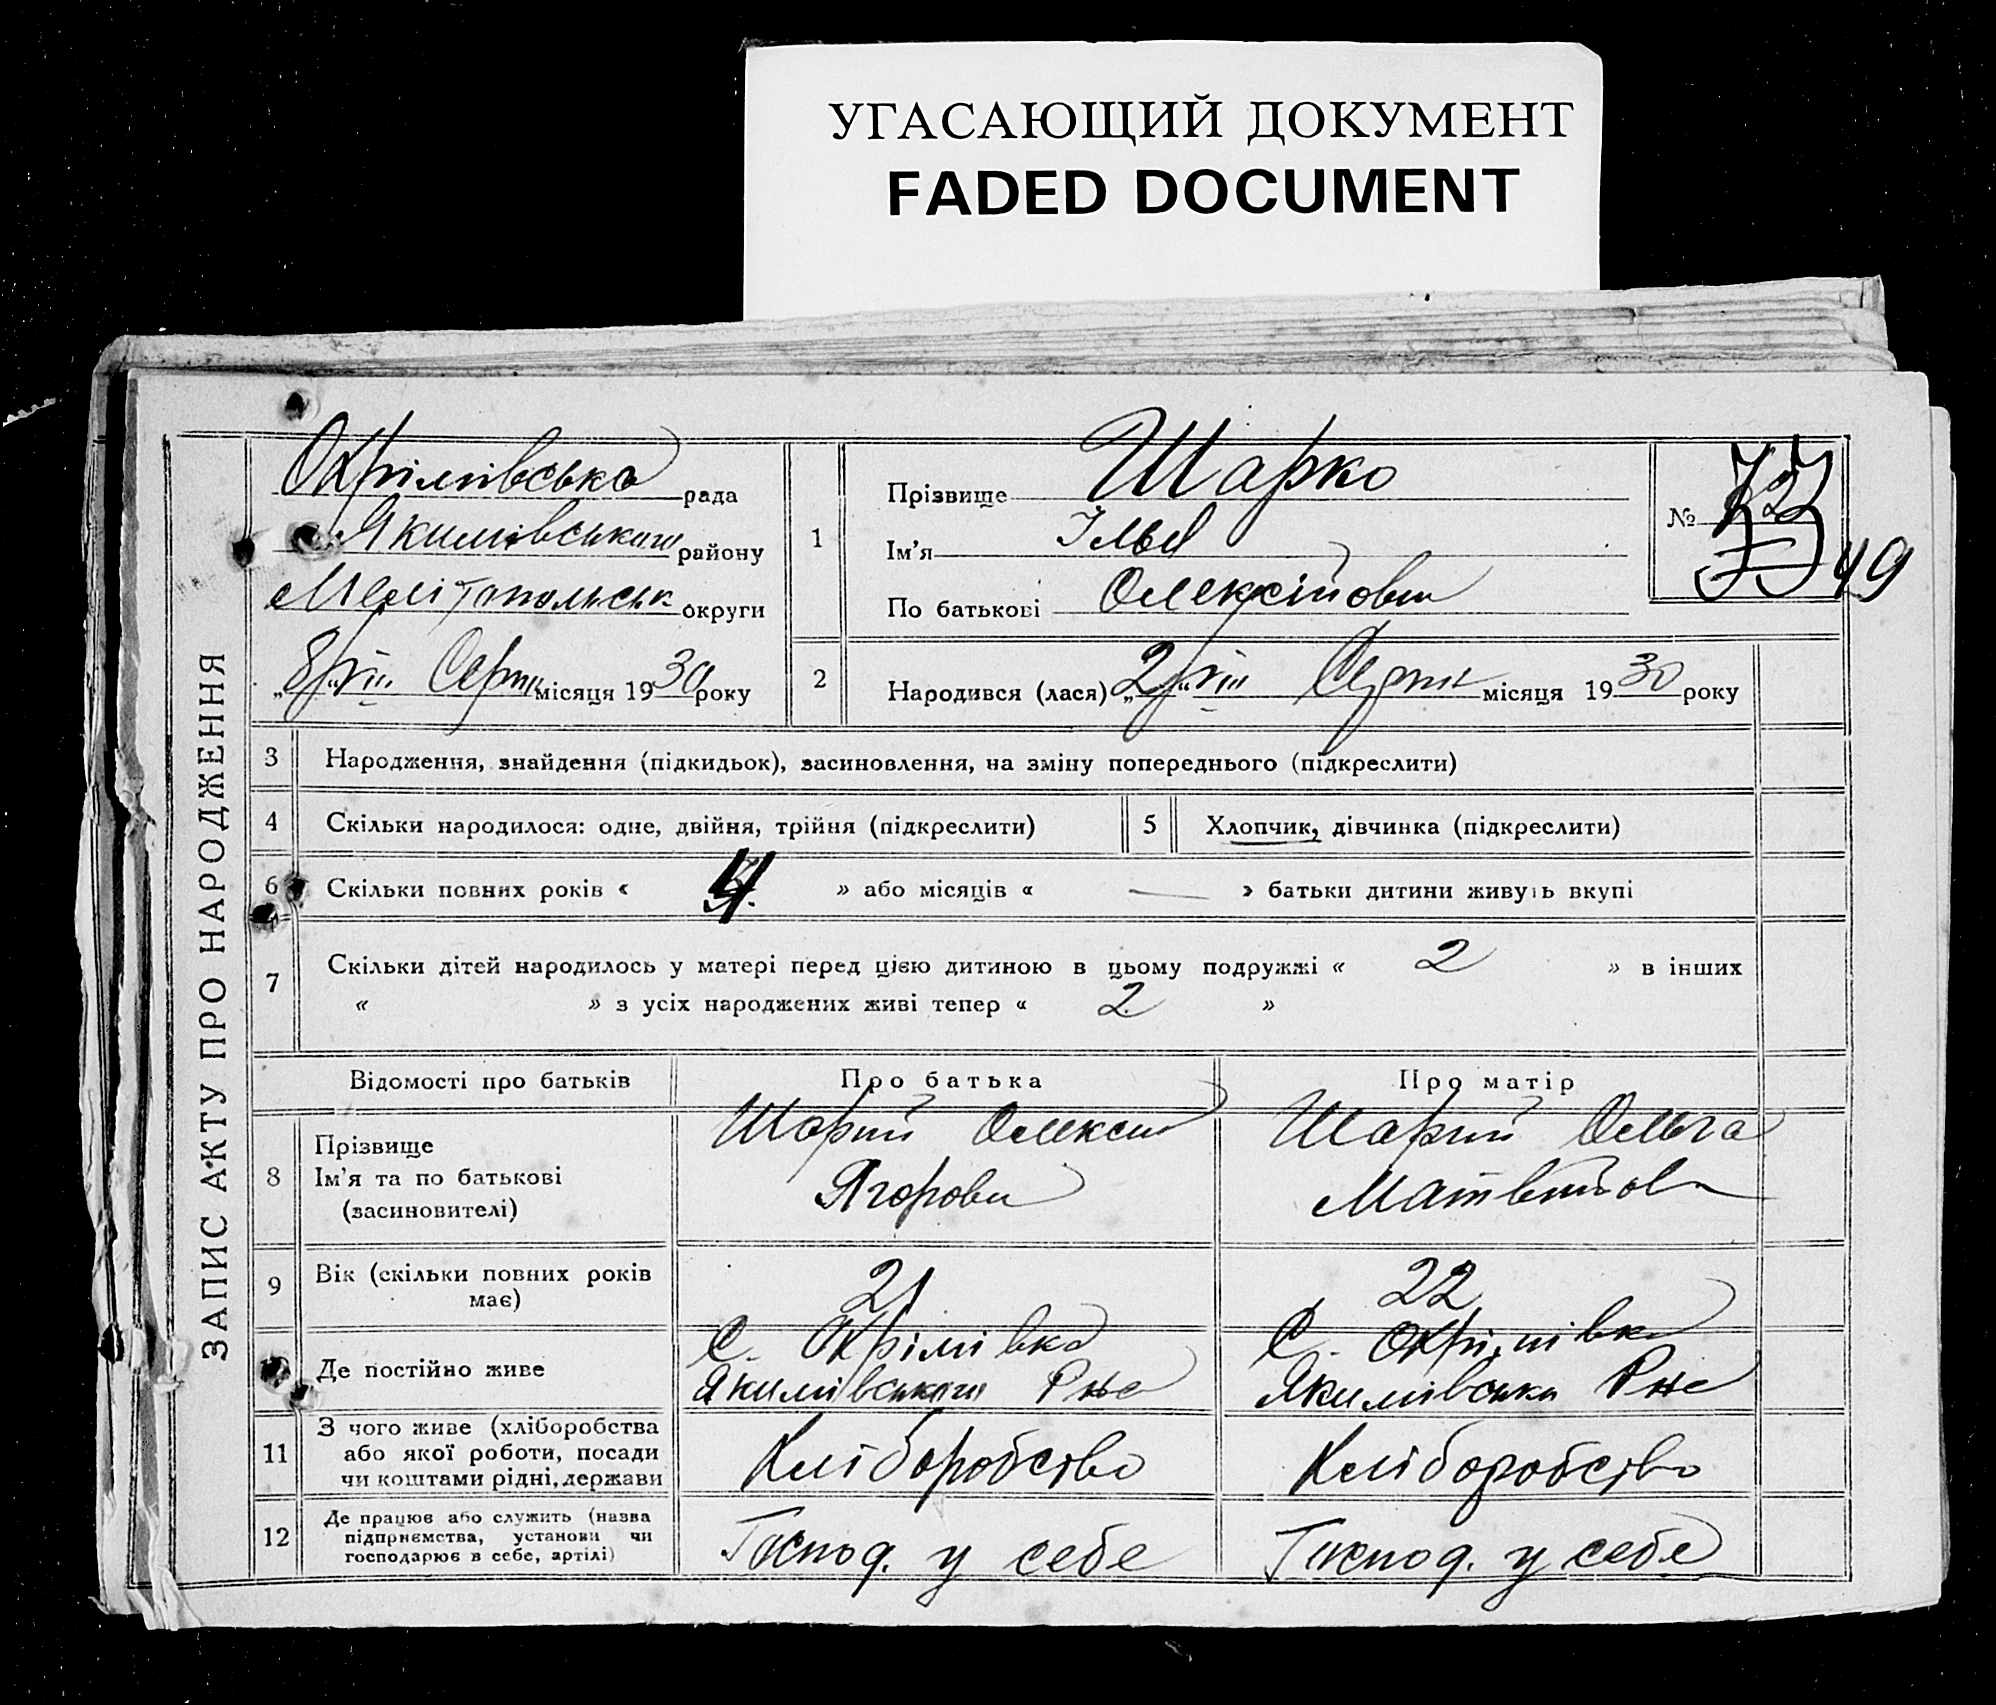 УГАСАЮЩИЙ ДОКУМЕНТ
FADED DOCUMENT
ЗАПИС АКТУ ПРО НАРОДЖЕННЯ
Охрімівська рада
Якимівського району
Мелітопольськ округи
„8“ VIII Серпн місяця 1930 року
1
Прізвище Шарко
Ім’я Ілья
По батькові Олексійович
№
49
2
Народився (лася) „2“ VIII Серпн місяця 1930 року
3 Народження, знайдення (підкидьок), засиновлення, на зміну попереднього (підкреслити)
4 Скільки народилося: одне, двійня, трійня (підкреслити) 5 Хлопчик, дівчинка (підкреслити)
6 Скільки повних років « 4 » або місяців « — » батьки дитини живуть вкупі
7 Скільки дітей народилось у матері перед цією дитиною в цьому подружжі « 2 » в інших
« » з усіх народжених живі тепер « 2 »
Відомості про батьків Про батька Про матір
8
Прізвище
Ім’я та по батькові
(засиновителі)
Олексій
Ягорови
Ольга
9
Вік (скільки повних років
має)
21
22
10
Де постійно живе
С. Охрімівка
Якимівського Рне
С. Охрімівка
Якимівська Рне
11
З чого живе (хліборобства
або якої роботи, посади
чи коштами рідні, держави
Хліборобство
Хліборобство
12
Де працює або служить (назва
підприємства, установи чи
господарює в себе, артілі)
Господ. у себе
Господ. у себе